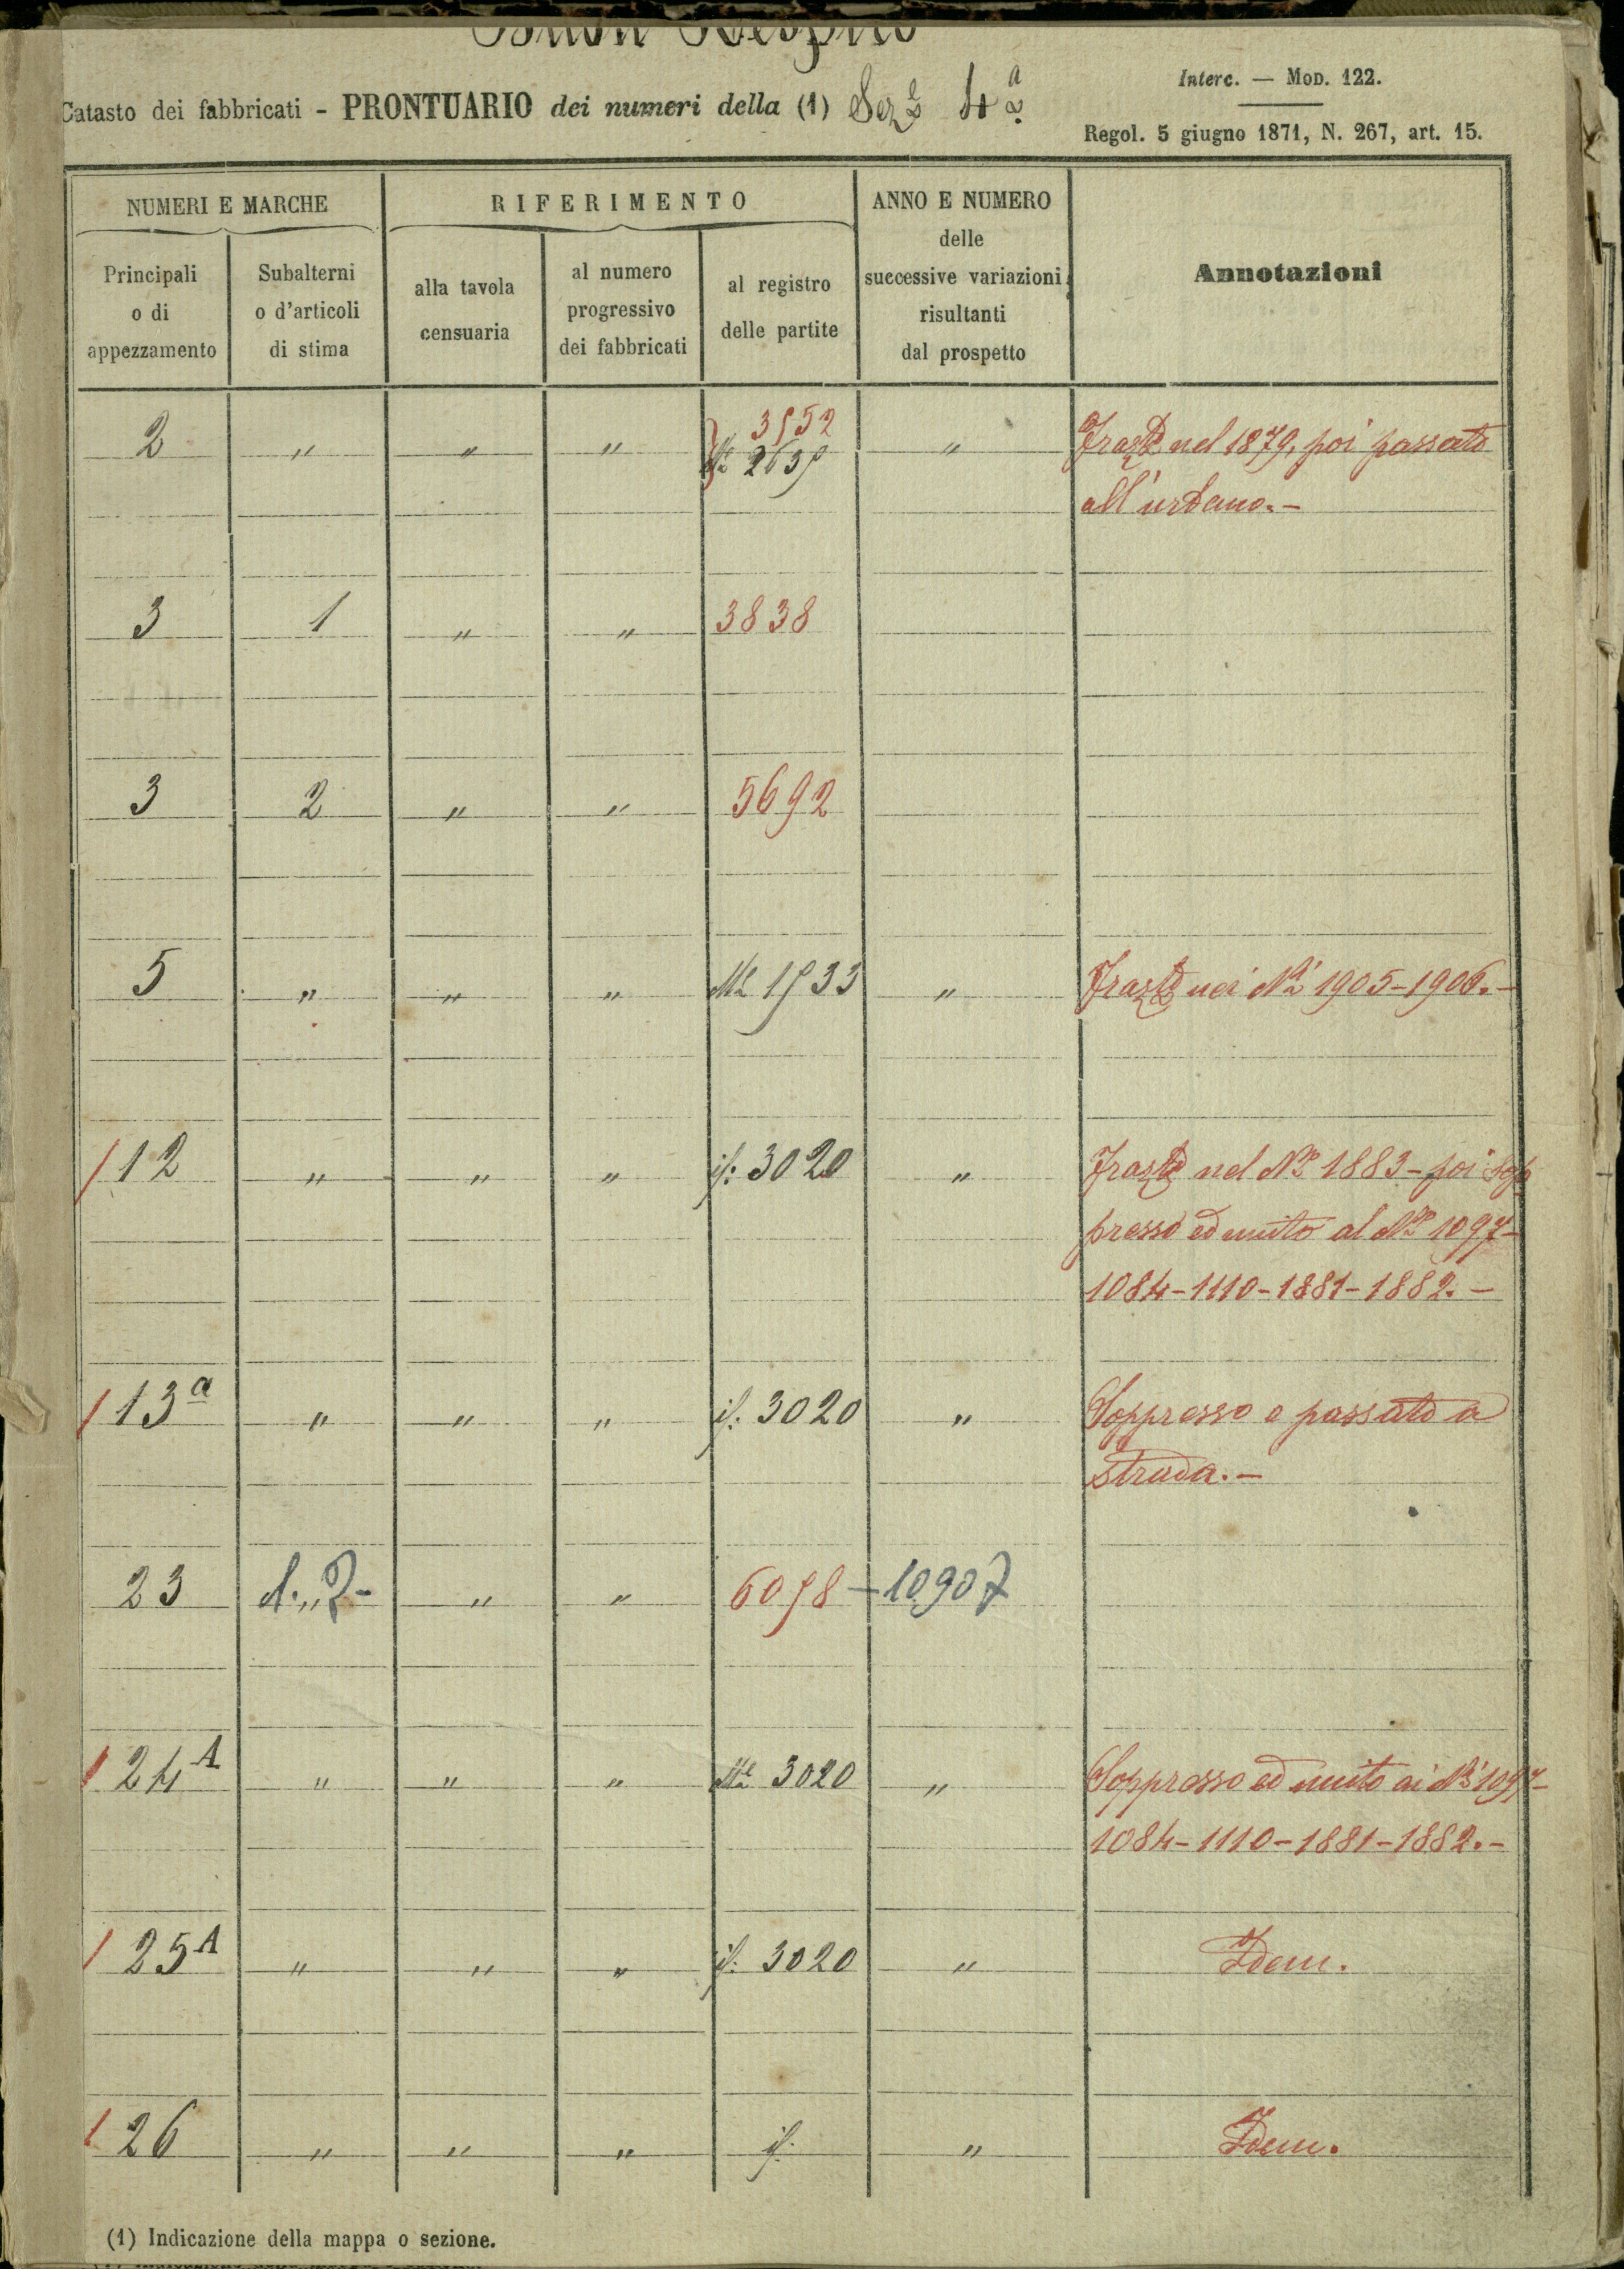 Interc. — Mod. 122.
Catasto dei fabbricati - PRONTUARIO dei numeri della (1) Sez.e 4a
Regol. 5 giugno 1871, N. 267, art. 15.
NUMERI E MARCHE RIFERIMENTO ANNO E NUMERO delle successive variazioni risultanti dal prospetto Annotazioni
Principali o di appezzamento Subalterni o d'articoli di stima alla tavola censuaria al numero progressivo dei fabbricati al registro delle partite
3552
2 " " " 2635 " Frazto nel 1879, poi passato
all'urbano. -
3 1 " " 3838
3 2 " " 5692
5 " " " 1533 " Frazto nei Ni 1905-1906. -
12 " " " if: 3020 " Frazto nel No 1883 - poi sop
presso ed unito al No 1097-
1084-1110-1881-1882. -
13a " " " if: 3020 " Soppresso e passato a
strada. -
23 " " 6058 - 10907
24A " " " 3020 " Soppresso ed unito ai Ni 1097-
1084-1110-1881-1882. -
25A " " " if: 3020 " Idem.
26 " " " if: " Idem.
(1) Indicazione della mappa o sezione.